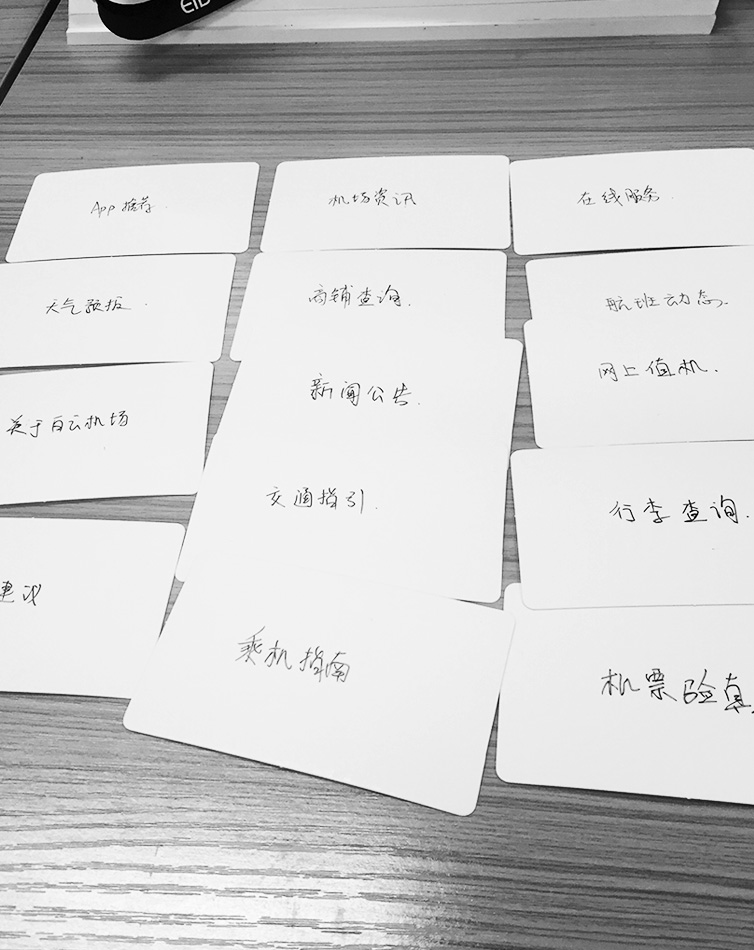 EID
App推荐.
机场资讯
在线服务.
天气预报.
商铺查询.
航班动态.
关于白云机场
新闻公告.
网上值机.
交通指引.
行李查询.
建议
乘机指南
机票验真.